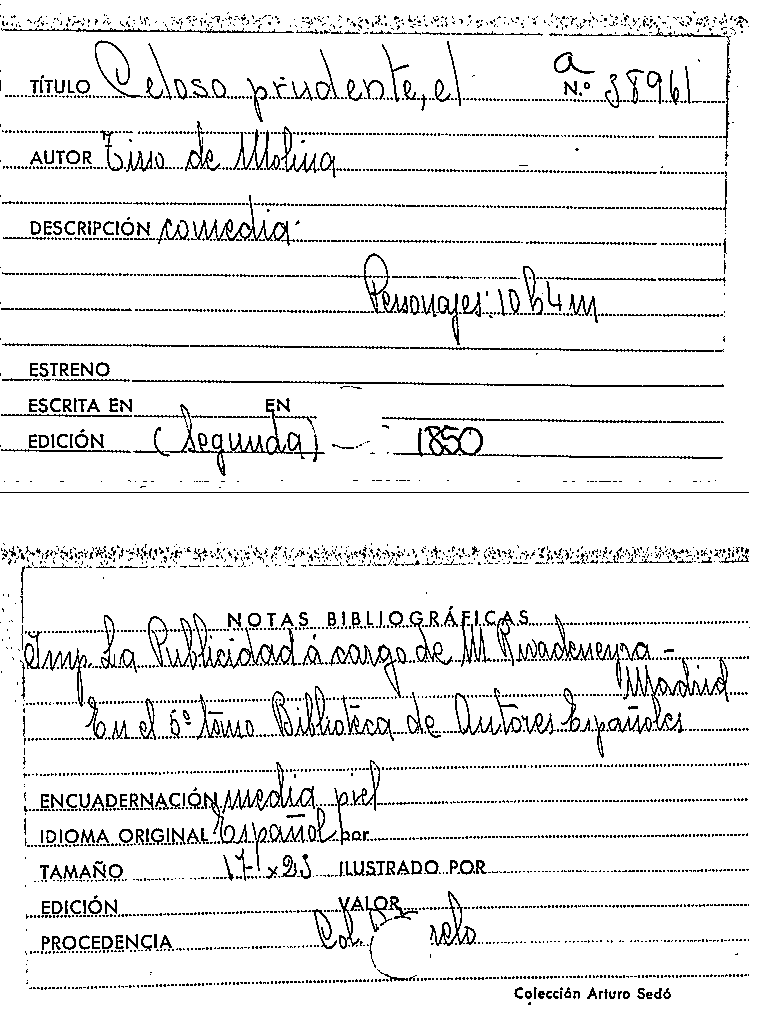 TÍTULO Celoso prudente, el
a
N.º 38961
AUTOR Tirso de Molina
DESCRIPCIÓN comedia.
Personajes: 10 h 4 m
ESTRENO
ESCRITA EN EN
EDICIÓN (Segunda) — 1850
NOTAS BIBLIOGRÁFICAS
Imp. La Publicidad á cargo de M Rivadeneyra -
Madrid
En el 5º tomo Biblioteca de Autores Españoles
ENCUADERNACIÓN media piel
IDIOMA ORIGINAL Español por
TAMAÑO 17 x 25 ILUSTRADO POR
EDICIÓN VALOR
PROCEDENCIA Col.
Colección Arturo Sedó